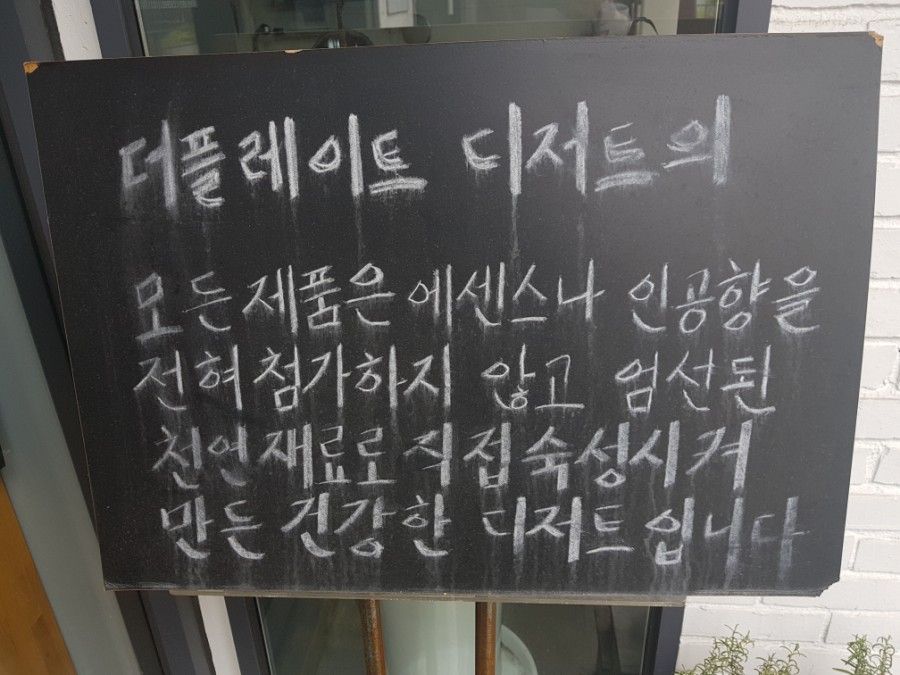 더플레이트 디저트의
모든제품은에센스나 인공향을
전혀첨가하지 않고 엄선된
천연재료로직접숙성시켜
만든 건강한 디저트입니다